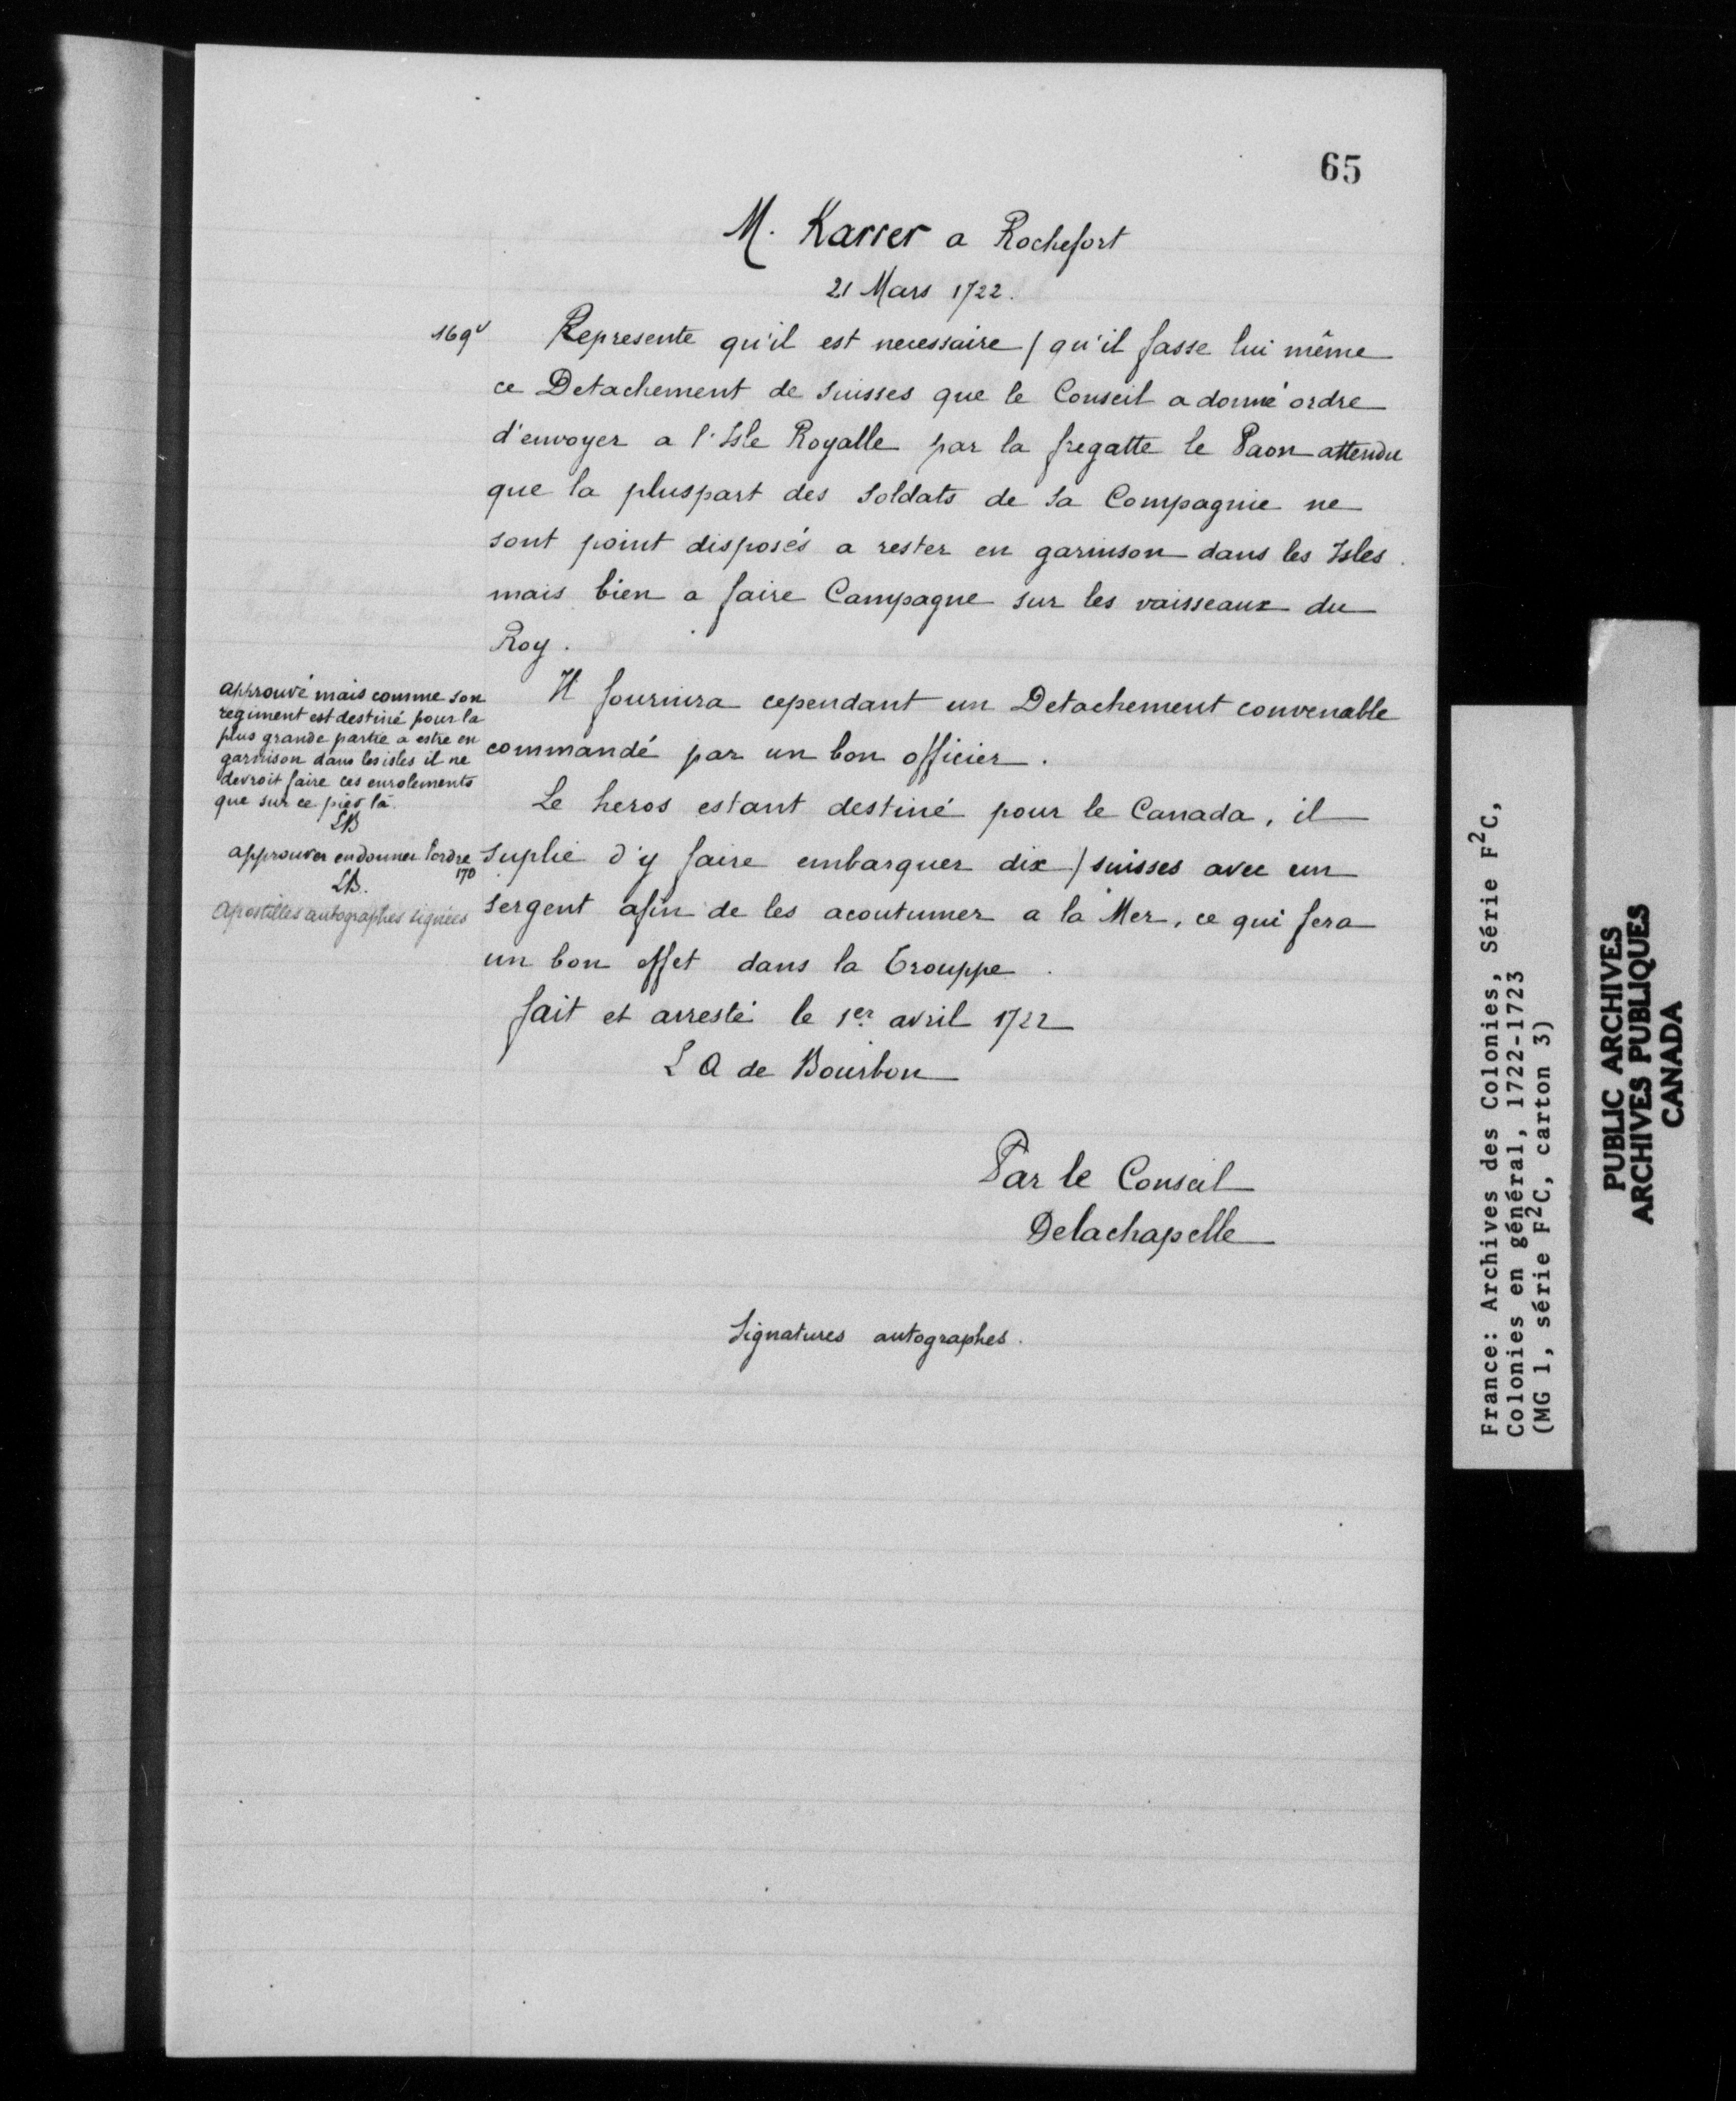 65
M. Karrer a Rochefort
21 Mars 1722.
169v Represente qu'il est necessaire / qu'il fasse lui même
ce Detachement de suisses que le Conseil a donné ordre
d'envoyer a l'Isle Royalle par la fregatte le Paon attendu
que la pluspart des Soldats de sa Compagnie ne
sont point disposés a rester en garnison dans les Isles.
mais bien a faire Campagne sur les vaisseaux du
Roy.
Il fournira cependant un Detachement convenable
commandé par un bon officier.
Le heros estant destiné pour le Canada, il
suplie d'y faire embarquer dix / suisses avec un
sergent afin de les acoutumer a la Mer, ce qui fera
un bon effet dans la Trouppe.
fait et arresté le 1er avril 1722
L A de Bourbon
Par le Conseil
Delachapelle
Signatures autographes.
approuvé mais comme son
regiment est destiné pour la
plus grande partie a estre en
garnison dans les isles il ne
devroit faire ces enrolements
que sur ce pied là.
LB
approuver en donner l'ordre
170
LB.
apostilles autographes signées
France: Archives des Colonies, Série F2C,
Colonies en général, 1722-1723
(MG 1, série F2C, carton 3)
PUBLIC ARCHIVES
ARCHIVES PUBLIQUES
CANADA